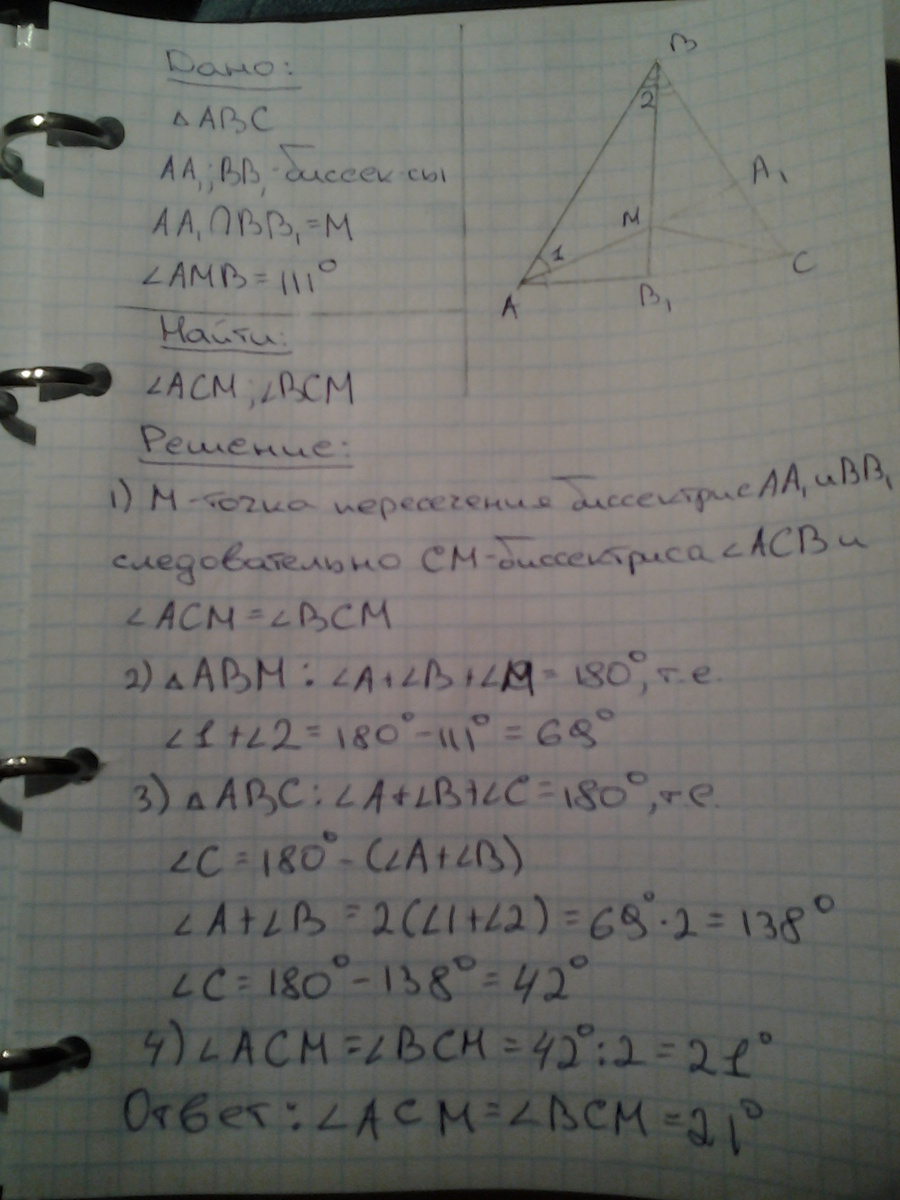 Дано:
△ABC
AA₁;BB₁-биссек-сы
AA₁∩BB₁=M
∠AMB=111°
Найти:
∠ACM;∠BCM
B
2
A₁
M
1
C
A
B₁
Решение:
1) M-точка пересечения биссектрис AA₁ и BB₁
следовательно CM-биссектриса ∠ACB и
∠ACM=∠BCM
2) △ABM: ∠A+∠B+∠M=180°, т.е.
∠1+∠2=180°-111°=69°
3) △ABC: ∠A+∠B+∠C=180°, т.е.
∠C=180°-(∠A+∠B)
∠A+∠B=2(∠1+∠2)=69°·2=138°
∠C=180°-138°=42°
4) ∠ACM=∠BCM=42°:2=21°
Ответ: ∠ACM=∠BCM=21°